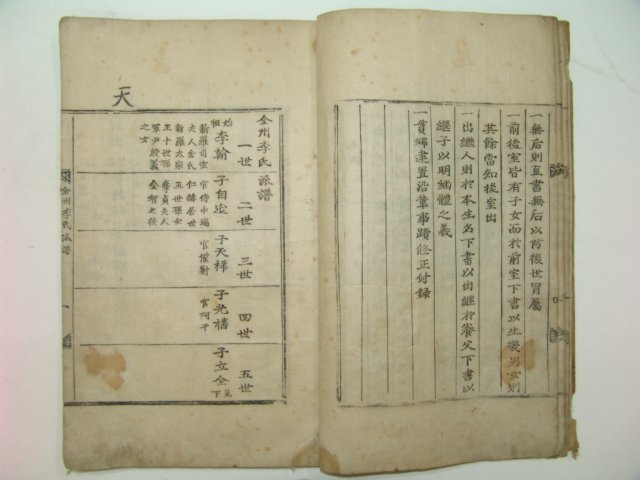 一無后則直書無后以防後世冒屬
一前後室皆有子女而於前室下書以生幾男女則
其餘當知後室出
一出繼人則於本生名下書以出繼於養父下書以
繼子以明緬體之義
一貫鄉建置沿革事蹟修正付錄
天
全州李氏派譜
一世
始祖李翰
新羅司空
夫人金氏
新羅太宗
王十世孫
軍尹殷義
之女
二世
子自延
官侍中端
仁韓居世
五世孫女
李貞夫人
金智之後
三世
子天祥
官僕射
四世
子光禧
官阿干
五世
子立全
見下
全州李氏派譜
一